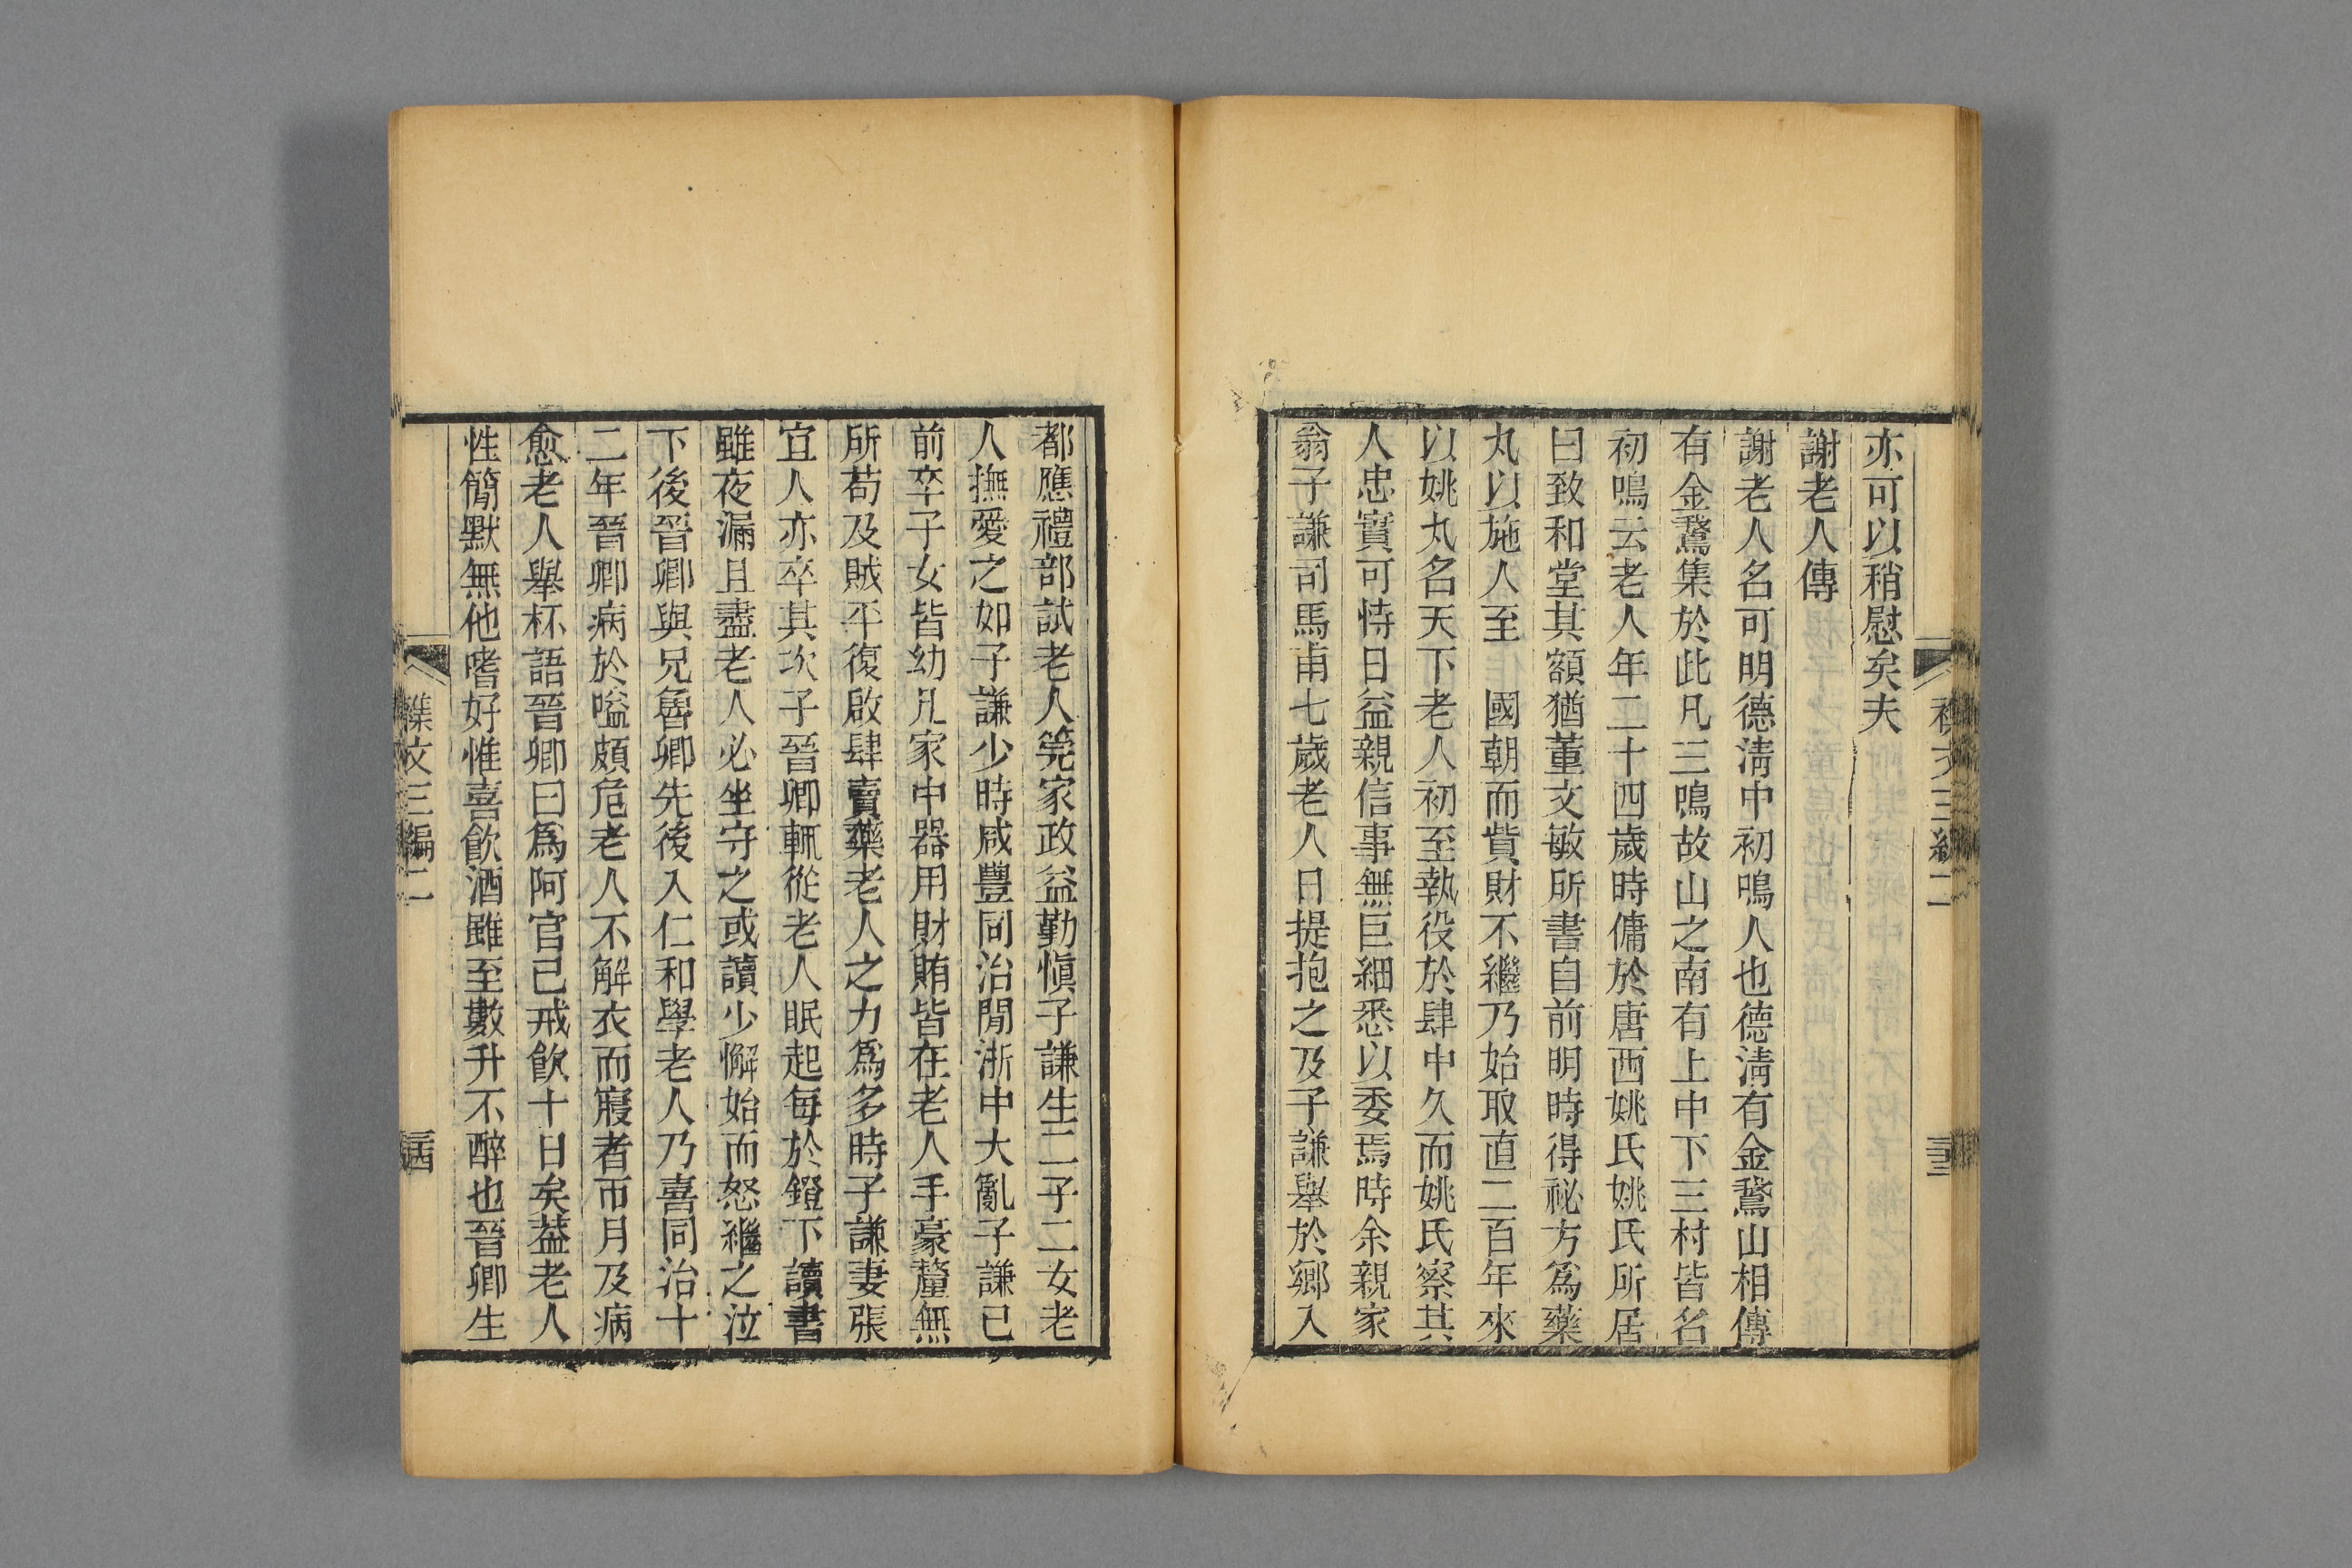 亦可以稍慰矣夫
謝老人傳
謝老人名可明德淸中初鳴人也德淸有金鵞山相傳
有金鵞集於此凡三鳴故山之南有上中下三村皆名
初鳴云老人年二十四歲時傭於唐西姚氏姚氏所居
曰致和堂其額猶董文敏所書自前明時得祕方爲藥
丸以施人至　國朝而貲財不繼乃始取直二百年來
以姚丸名天下老人初至執役於肆中久而姚氏察其
人忠實可恃日益親信事無巨細悉以委焉時余親家
翁子謙司馬甫七歲老人日提抱之及子謙舉於鄉入
都應禮部試老人筦家政益勤愼子謙生二子二女老
人撫愛之如子謙少時咸豐同治閒浙中大亂子謙已
前卒子女皆幼凡家中器用財賄皆在老人手豪釐無
所苟及賊平復啟肆賣藥老人之力爲多時子謙妻張
宜人亦卒其次子晉卿輒從老人眠起每於鐙下讀書
雖夜漏且盡老人必坐守之或讀少懈始而怒繼之泣
下後晉卿與兄魯卿先後入仁和學老人乃喜同治十
二年晉卿病於嗌頗危老人不解衣而寢者帀月及病
愈老人舉杯語晉卿曰爲阿官已戒飮十日矣葢老人
性簡默無他嗜好惟喜飮酒雖至數升不醉也晉卿生
襍文三編二